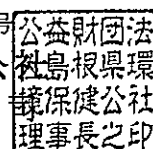 号
公益財団法
社島根県環
境保健公社
理事長之印